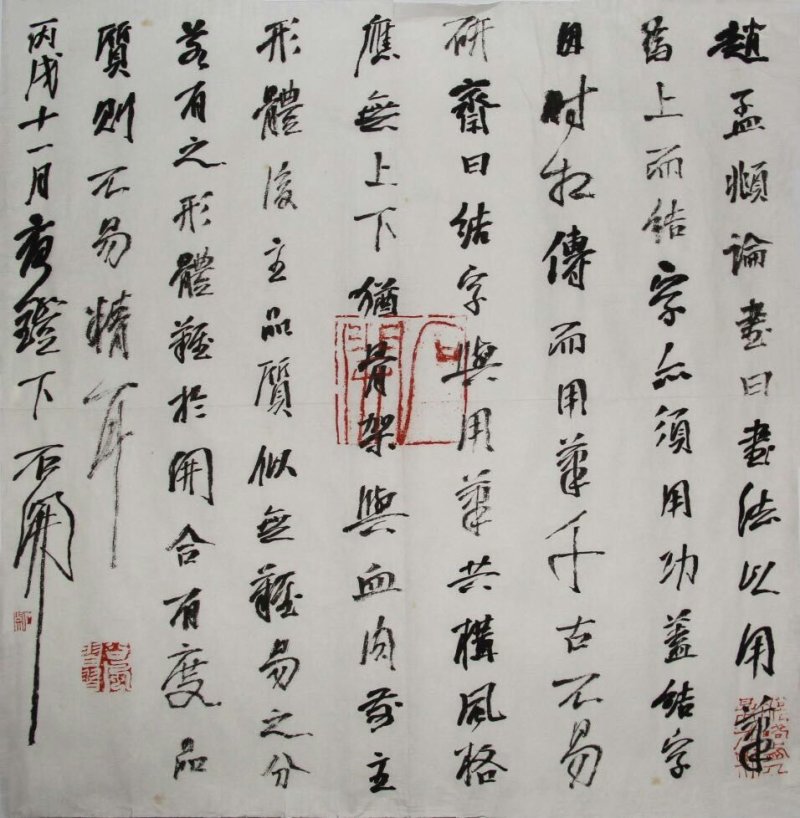 趙孟頫論書曰書法以用筆
為上而結字亦須用功蓋結字
因時相傳而用筆千古不易
研齋曰結字與用筆共構風格
應無上下猶骨架與血肉前主
形體後主品質似無難易之分
若有之形體難於開合有度品
質則不易精耳
丙戌十一月夜燈下石開